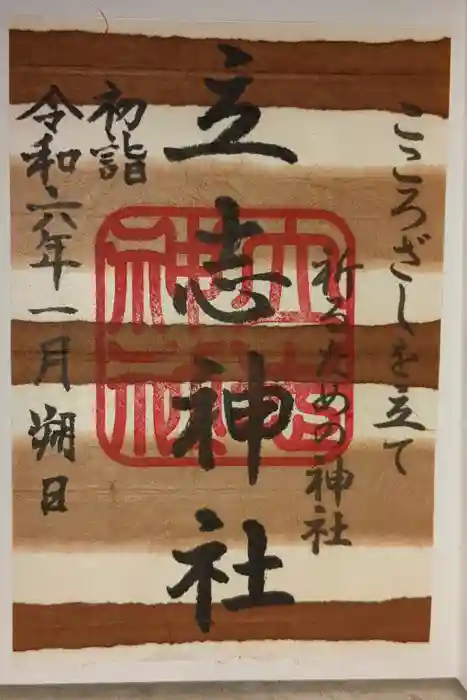 こころざしを立て
祈るための神社
立志神社
初詣
令和六年一月朔日
立志神社